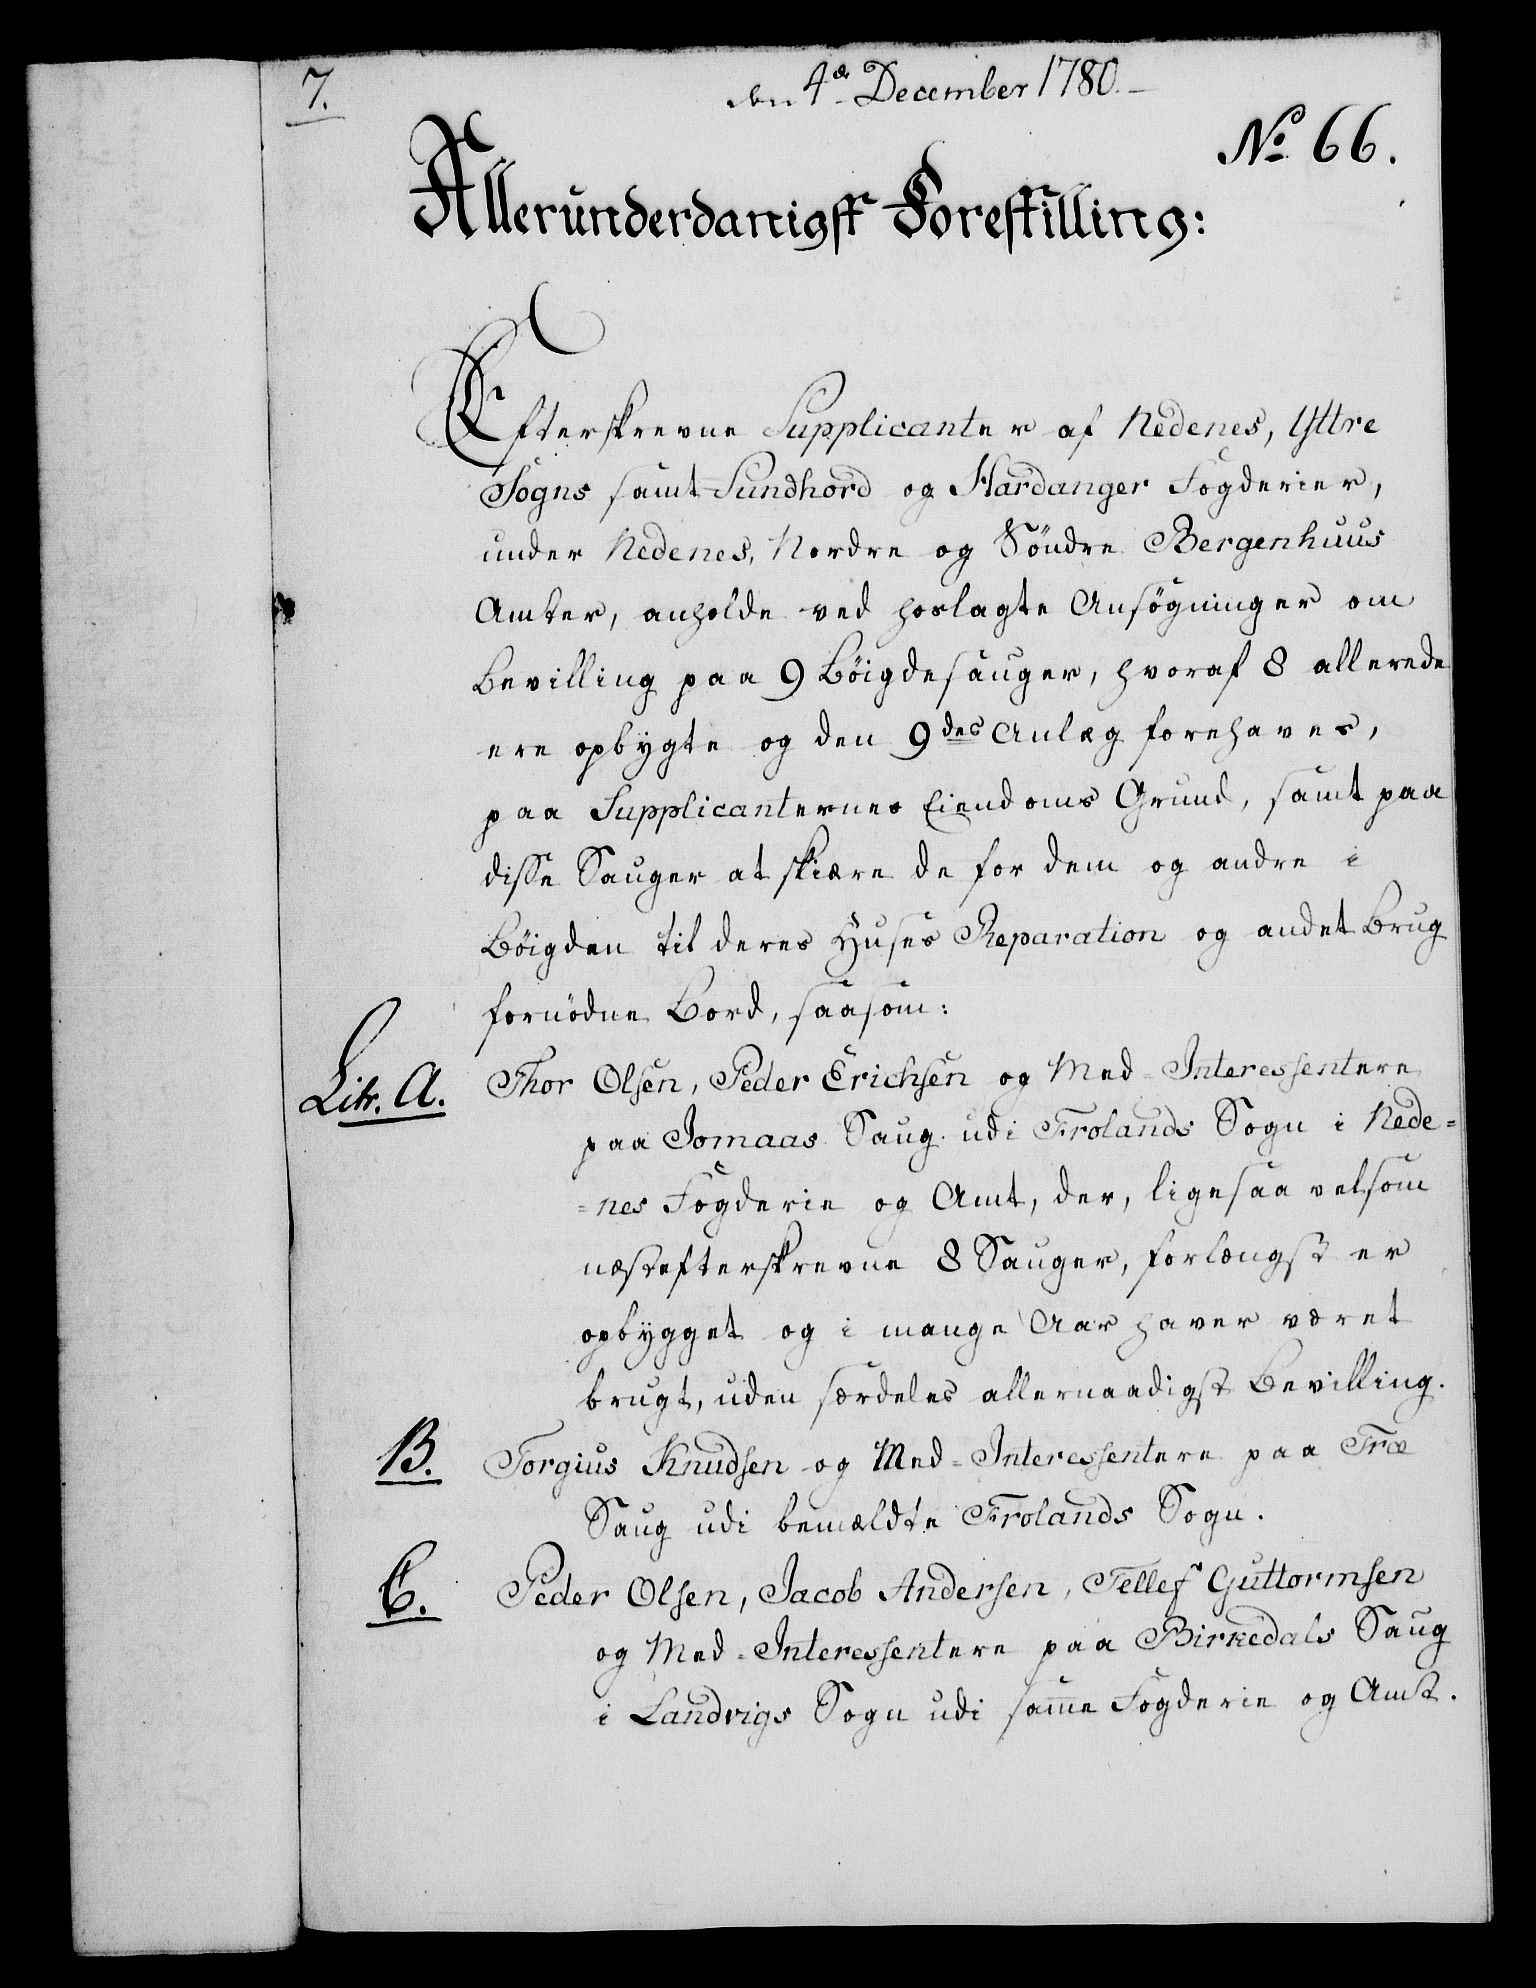 7.
den 4de December 1780.
No 66.
Allerunderdanigst Forestilling:
Efterskrevne Supplicanter af Nedenes, Yttre
Sogns samt Sundhord og Hardanger Fogderier,
under Nedenes, Nordre og Söndre Bergenhuus
Amter, anholde ved hoslagte Ansøgninger om
Bevilling paa 9 Böigdesauger, hvoraf 8 allerede
ere opbygte og den 9des Anlæg forehaves,
paa Supplicanternes Eiendoms Grund, samt paa
disse Sauger at skiære de for dem og andre i
Böigden til deres Huses Reparation og andet Brug
fornödne Bord, saasom:
Litr. A. Thor Olsen, Peder Erichsen og Med-Interessentere
paa Jomaas Saug udi Frolands Sogn i Nede=
=nes Fogderie og Amt, der, ligesaavelsom
næstefterskrevne 8 Sauger, forlængst er
opbygget og i mange Aar haver været
brugt, uden særdeles allernaadigst Bevilling.
B. Torgius Knudsen og Med-Interessentere paa Træ
Saug udi bemældte Frolands Sogn.
C. Peder Olsen, Jacob Andersen, Tellef Guttormsen
og Med-Interessentere paa Birkedals Saug
i Landvigs Sogn udi samme Fogderie og Amt.